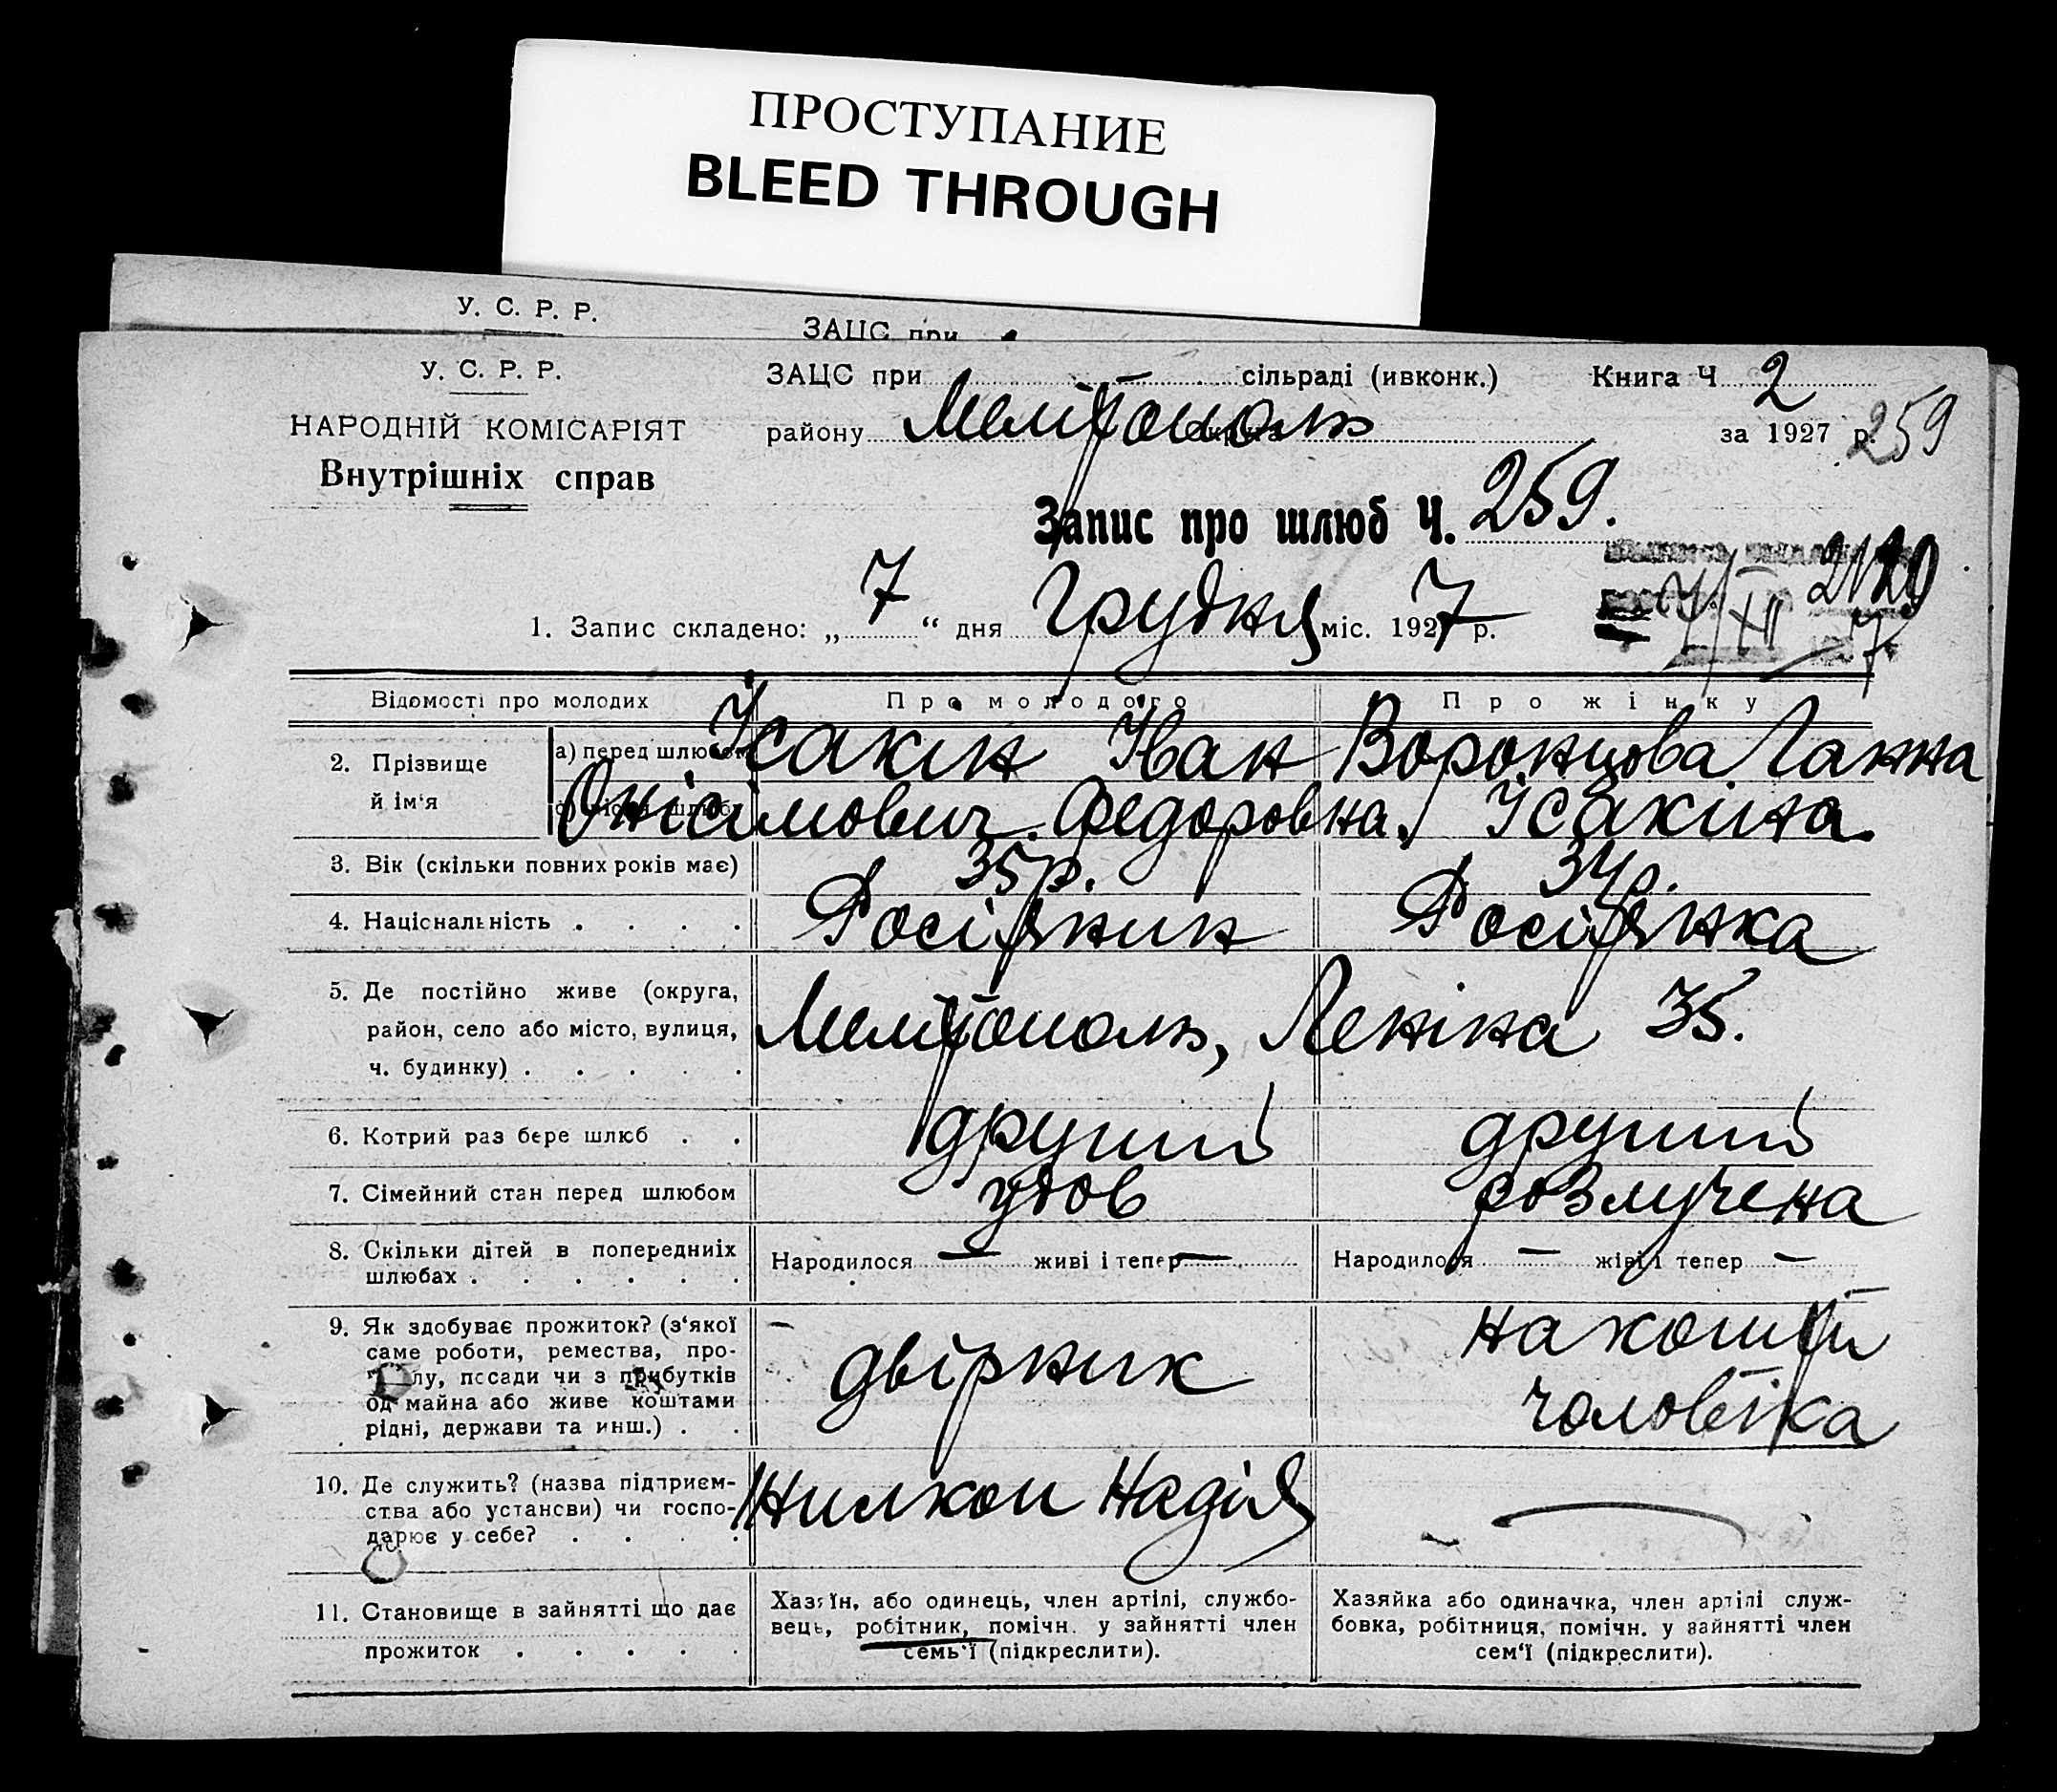 ПРОСТУПАНИЕ
BLEED THROUGH
У. С. Р. Р.
ЗАЦС при
У. С. Р. Р.
ЗАЦС при сільраді (ивконк.) Книга Ч 2
НАРОДНІЙ КОМІСАРІЯТ
району Мелітополь за 1927 р. 259
Внутрішніх справ
Запис про шлюб Ч. 259.
2120
1. Запис складено: „ 7 “ дня Грудня міс. 1927 р.
7/XII 7
Відомості про молодих Про молодого Про жінку
2. Прізвище й ім'я а) перед шлюбом Ісакін Іван Воронцова Ганна
Онісімович Федоровна / Ісакіна.
3. Вік (скільки повних років має) 35 р. 34 р.
4. Національність . . . . Росіянин Росіянка
5. Де постійно живе (округа,
район, село або місто, вулиця,
ч. будинку) . . . . . Мелітополь, Леніна 35.
6. Котрий раз бере шлюб . . другий другий
7. Сімейний стан перед шлюбом удов розлучена
8. Скільки дітей в попередниіх
шлюбах . . . . . . Народилося — живі і тепер — Народилося — жіві і тепер —
9. Як здобуває прожиток? (з‘якої
саме роботи, ремества, про-
лу, посади чи з прибутків
од майна або живе коштами
рідні, держави та инш.) . .
двірник на кошти
чоловіка
10. Де служить? (назва підприєм-
ства або устансви) чи госпо-
дарює у себе? . . . . Надія
11. Становище в зайнятті що дає
прожиток . . . . .
Хазяїн, або одинець, член артілі, службо-
вець, робітник, помічн. у зайнятті член
семь‘ї (підкреслити).
Хазяйка або одиначка, член артілі служ-
бовка, робітниця, помічн. у зайнятті член
сем‘ї (підкреслити).